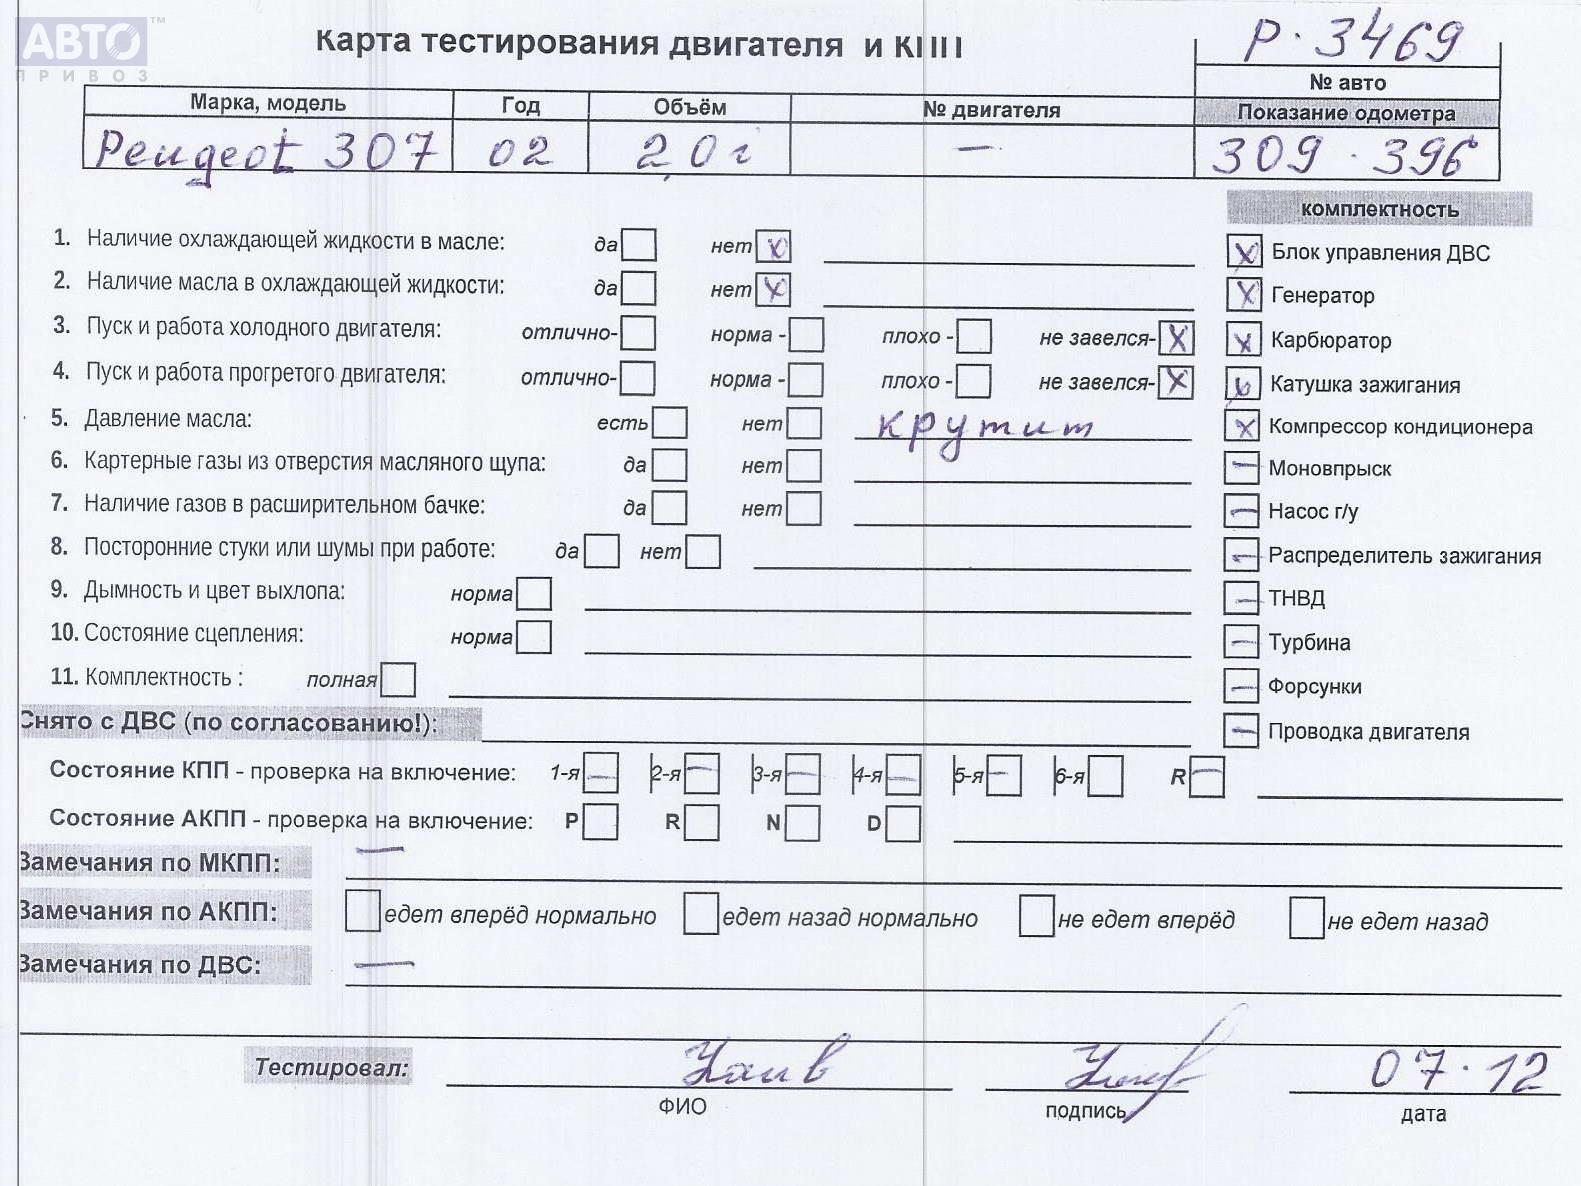 АВТО™
ПРИВОЗ
Карта тестирования двигателя и КПП
P·3469
№ авто
Марка, модель Год Объём № двигателя Показание одометра
Peugeot 307 02 2,0i — 309·396
комплектность
1. Наличие охлаждающей жидкости в масле: да нет x
Блок управления ДВС
2. Наличие масла в охлаждающей жидкости: да нет x
Генератор
3. Пуск и работа холодного двигателя: отлично- норма - плохо - не завелся- x
Карбюратор
4. Пуск и работа прогретого двигателя: отлично- норма - плохо - не завелся- x
Катушка зажигания
5. Давление масла: есть нет крутит
Компрессор кондиционера
6. Картерные газы из отверстия масляного щупа: да нет
Моновпрыск
7. Наличие газов в расширительном бачке: да нет
Насос г/у
8. Посторонние стуки или шумы при работе: да нет
Распределитель зажигания
9. Дымность и цвет выхлопа: норма
ТНВД
10. Состояние сцепления: норма
Турбина
11. Комплектность : полная
Форсунки
Снято с ДВС (по согласованию!):
Проводка двигателя
Состояние КПП - проверка на включение: 1-я — 2-я — 3-я — 4-я — 5-я — 6-я R —
Состояние АКПП - проверка на включение: P R N D
Замечания по МКПП: —
Замечания по АКПП: едет вперёд нормально едет назад нормально не едет вперёд не едет назад
Замечания по ДВС: —
Тестировал: 07·12
ФИО подпись дата